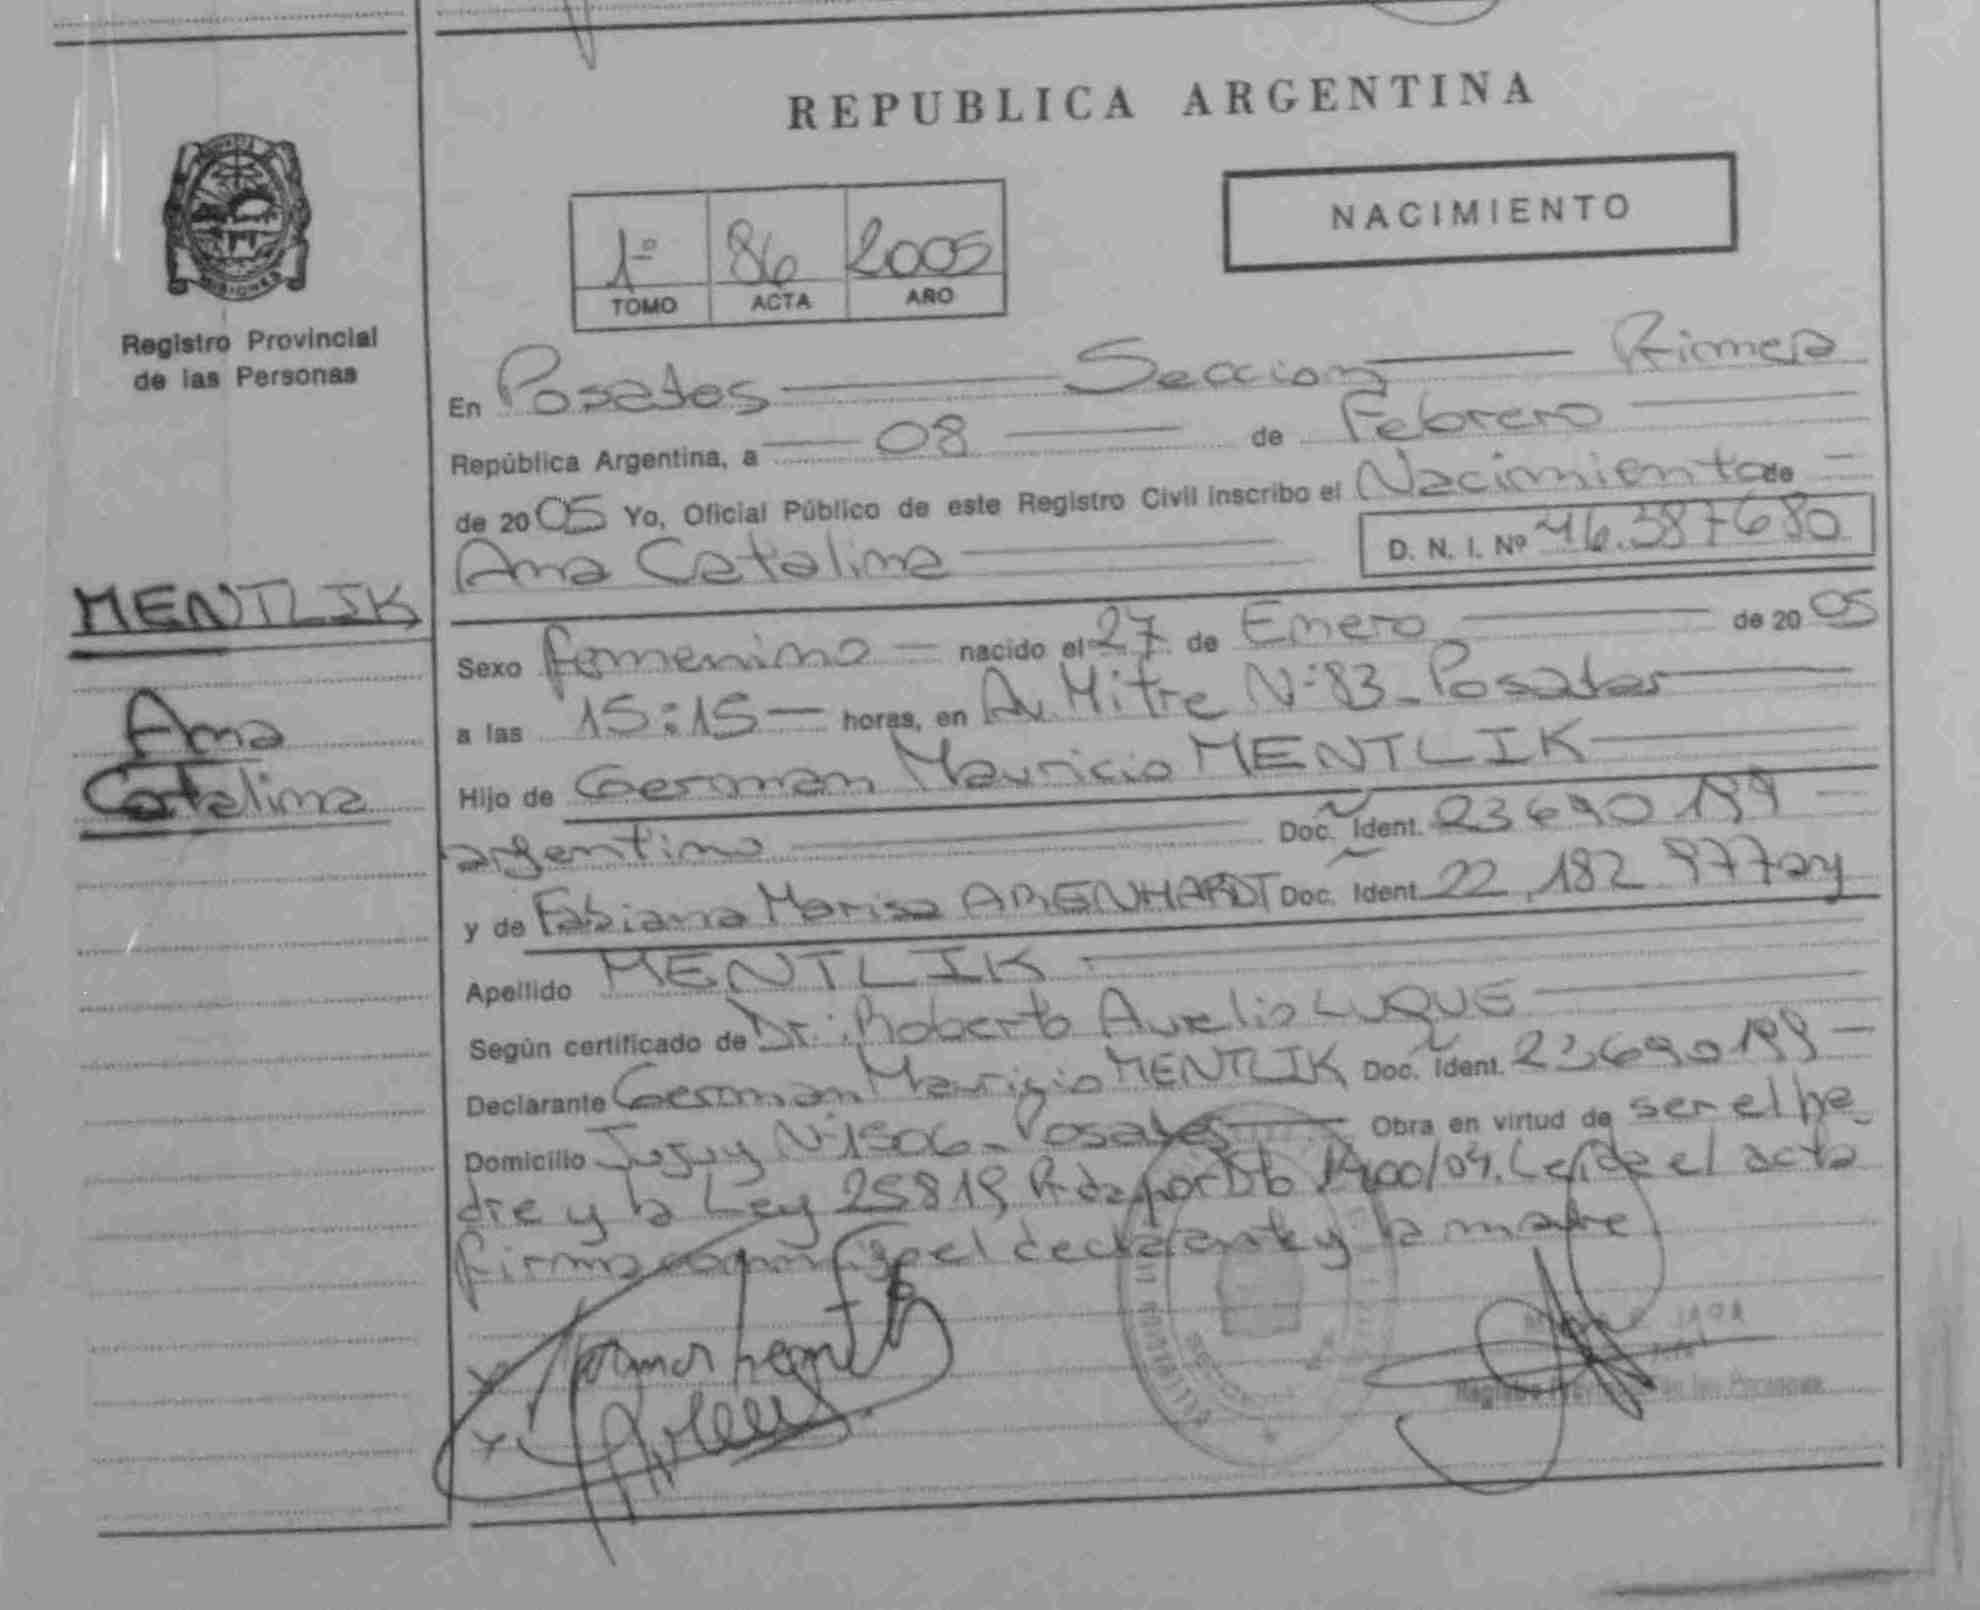 REPUBLICA ARGENTINA
NACIMIENTO
1º 86 2005
TOMO ACTA AÑO
MISIONES
Registro Provincial
de las Personas
MENTLIK
Ana
Catalina
En Posadas Seccion Primera
República Argentina, a 08 de Febrero
de 2005 Yo, Oficial Público de este Registro Civil inscribo el Nacimiento de
Ana Catalina D. N. I. Nº 46.387680
Sexo femenino nacido el 27 de Enero de 2005
a las 15:15 horas, en Av. Mitre Nº 83 - Posadas
Hijo de German Mauricio MENTLIK
argentino Doc. Ident. 23690199
y de Fabiana Marisa ARENHARDT Doc. Ident. 22.182.977
Apellido MENTLIK
Según certificado de Dr.: Roberto Aurelio LUQUE
Declarante German Mauricio MENTLIK Doc. Ident. 23690199
Domicilio Jujuy Nº 1506 - Posadas Obra en virtud de ser el pa-
dre y la Ley 25819 por Dto 1400/04. Leida el acta
firma conmigo el declarante y la madre
JARA
Registro Provincial de las Personas